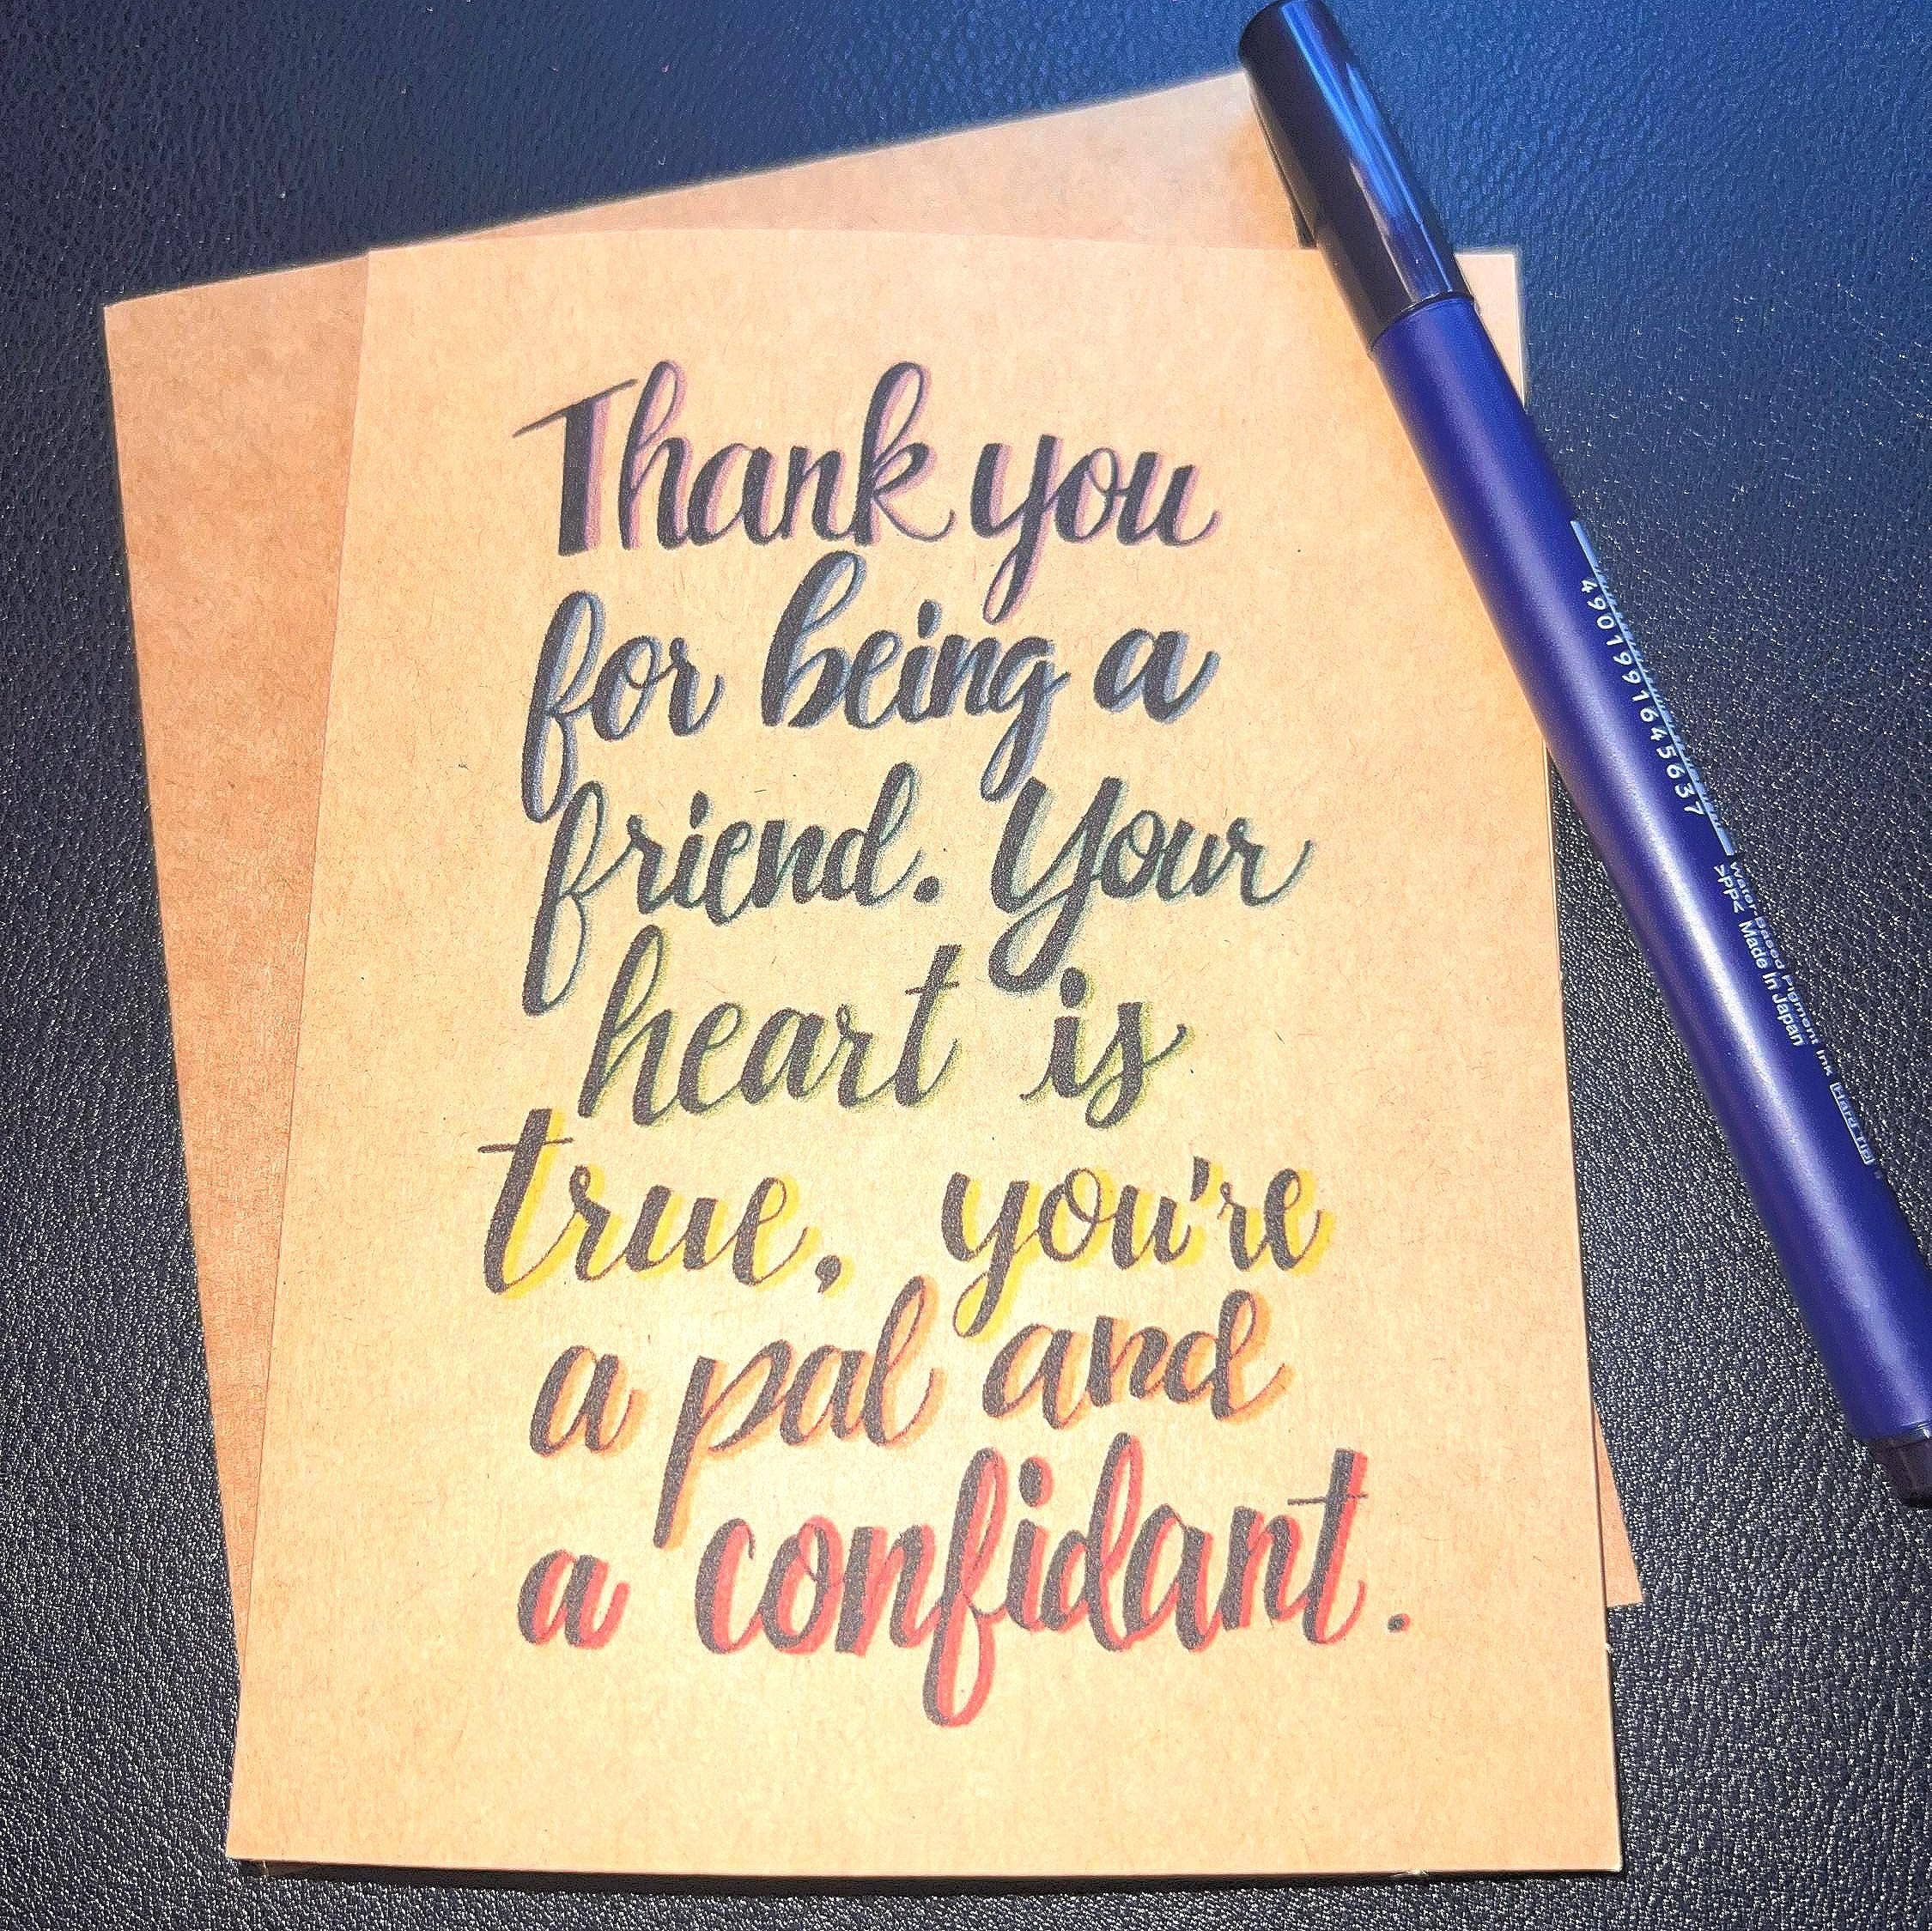 Thank you
for being a
friend. Your
heart is
true, you're
a pal and
a confidant.
4901991645637
Water Based Pigment Ink
>PP< Made in Japan